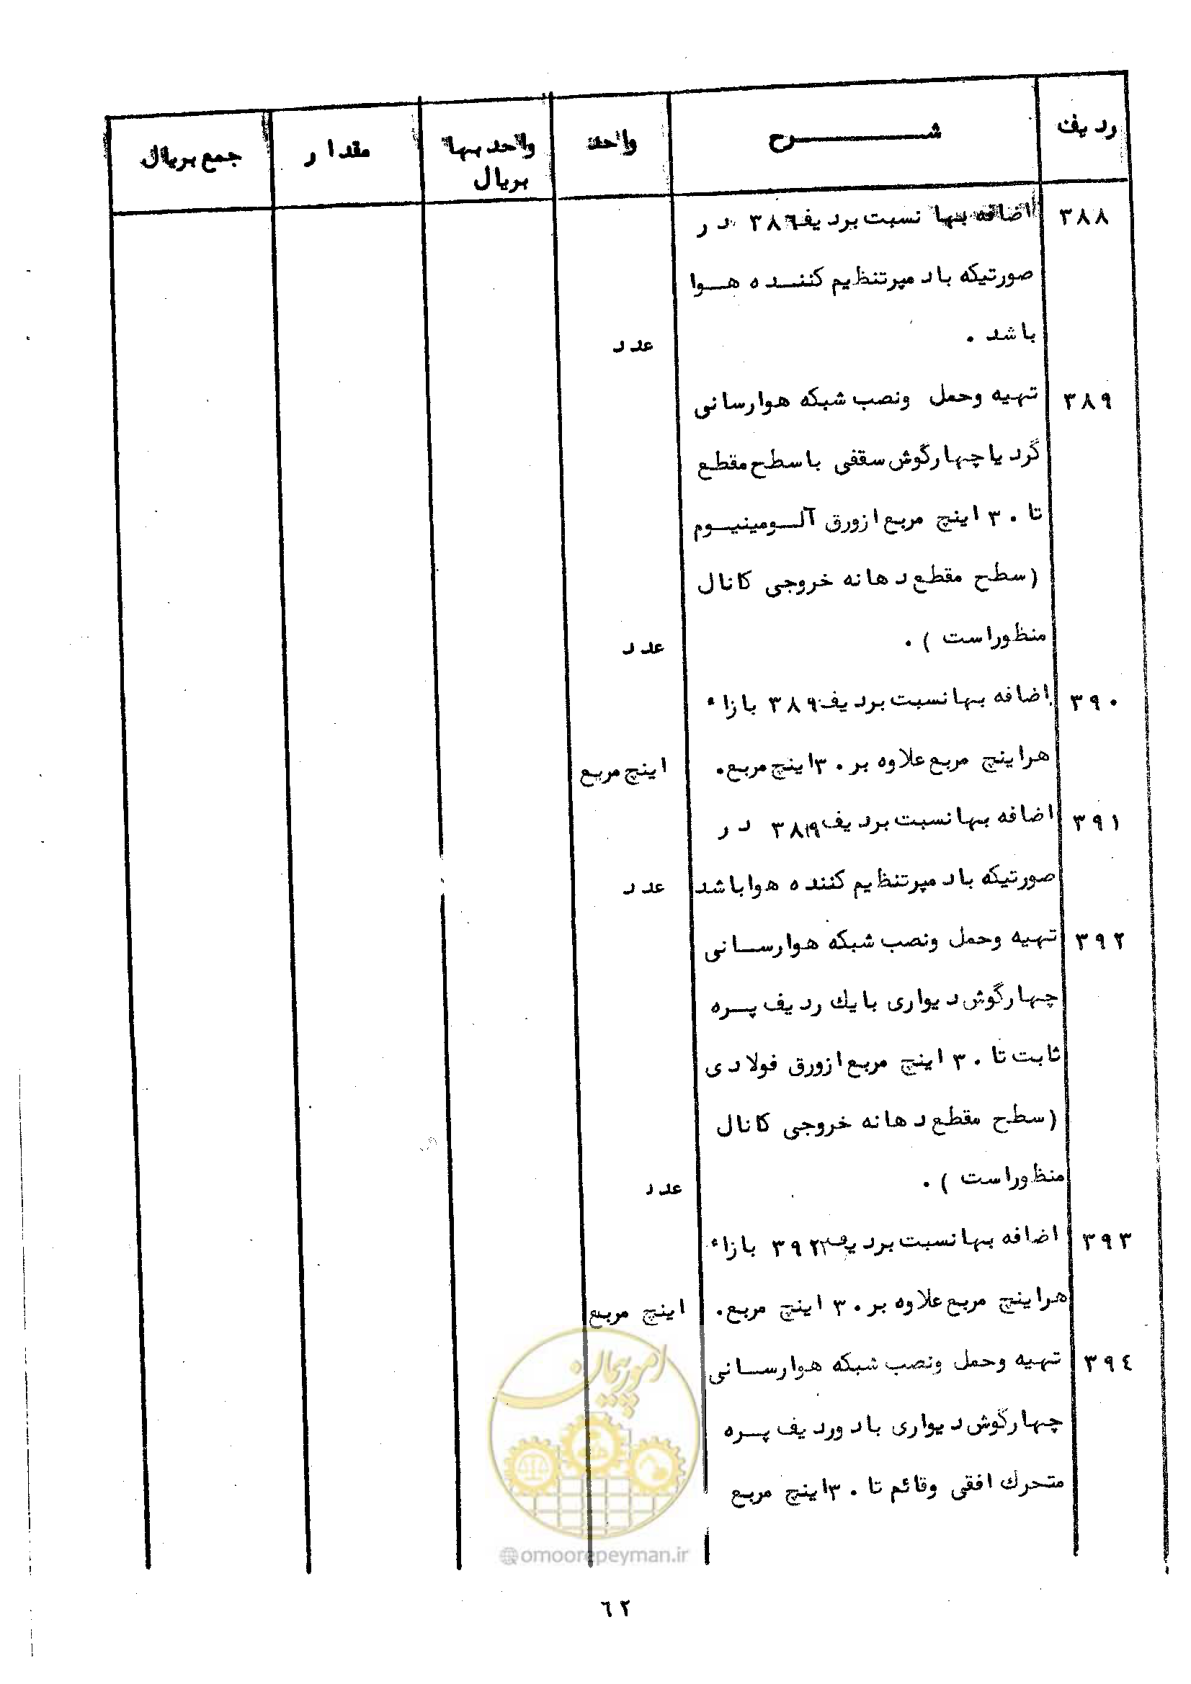 ردیف شرح واحد واحد بها بریال مقدار جمع بریال
۳۸۸ اضافه بها نسبت بردیف ۳۸۶ در
صورتیکه با دمپر تنظیم کننده هوا
باشد . عدد
۳۸۹ تهیه وحمل ونصب شبکه هوارسانی
گرد یا چهارگوش سقفی با سطح مقطع
تا ۳۰ اینچ مربع ازورق آلومینیوم
(سطح مقطع دهانه خروجی کانال
منظوراست ) . عدد
۳۹۰ اضافه بها نسبت بردیف ۳۸۹ بازاء
هراینچ مربع علاوه بر ۳۰ اینچ مربع. اینچ مربع
۳۹۱ اضافه بها نسبت بردیف ۳۸۹ در
صورتیکه با دمپر تنظیم کننده هوا باشد عدد
۳۹۲ تهیه وحمل ونصب شبکه هوارسانی
چهارگوش دیواری با یك ردیف پره
ثابت تا ۳۰ اینچ مربع ازورق فولادی
(سطح مقطع دهانه خروجی کانال
منظوراست ) . عدد
۳۹۳ اضافه بها نسبت بردیف ۳۹۲ بازاء
هراینچ مربع علاوه بر ۳۰ اینچ مربع. اینچ مربع
۳۹٤ تهیه وحمل ونصب شبکه هوارسانی
چهارگوش دیواری با دوردیف پره
متحرك افقی وقائم تا ۳۰ اینچ مربع
امور پیمان
@omoorepeyman.ir
٦۲